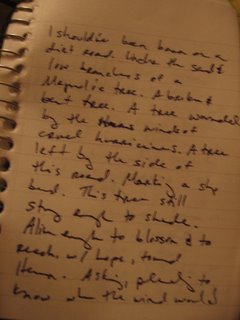 I should've been born on a
dirt road. Under the sand &
low branches of a
Magnolia tree. A broken &
bent tree. A tree wounded
by the winds of
cruel hurricanes. A tree
left by the side of
this road. Marking a sharp
bend. This tree still
strong enough to shade.
Alive enough to blossom & to
reach, w/ hope, toward
Heaven. Asking, pleading to
know when the wind would